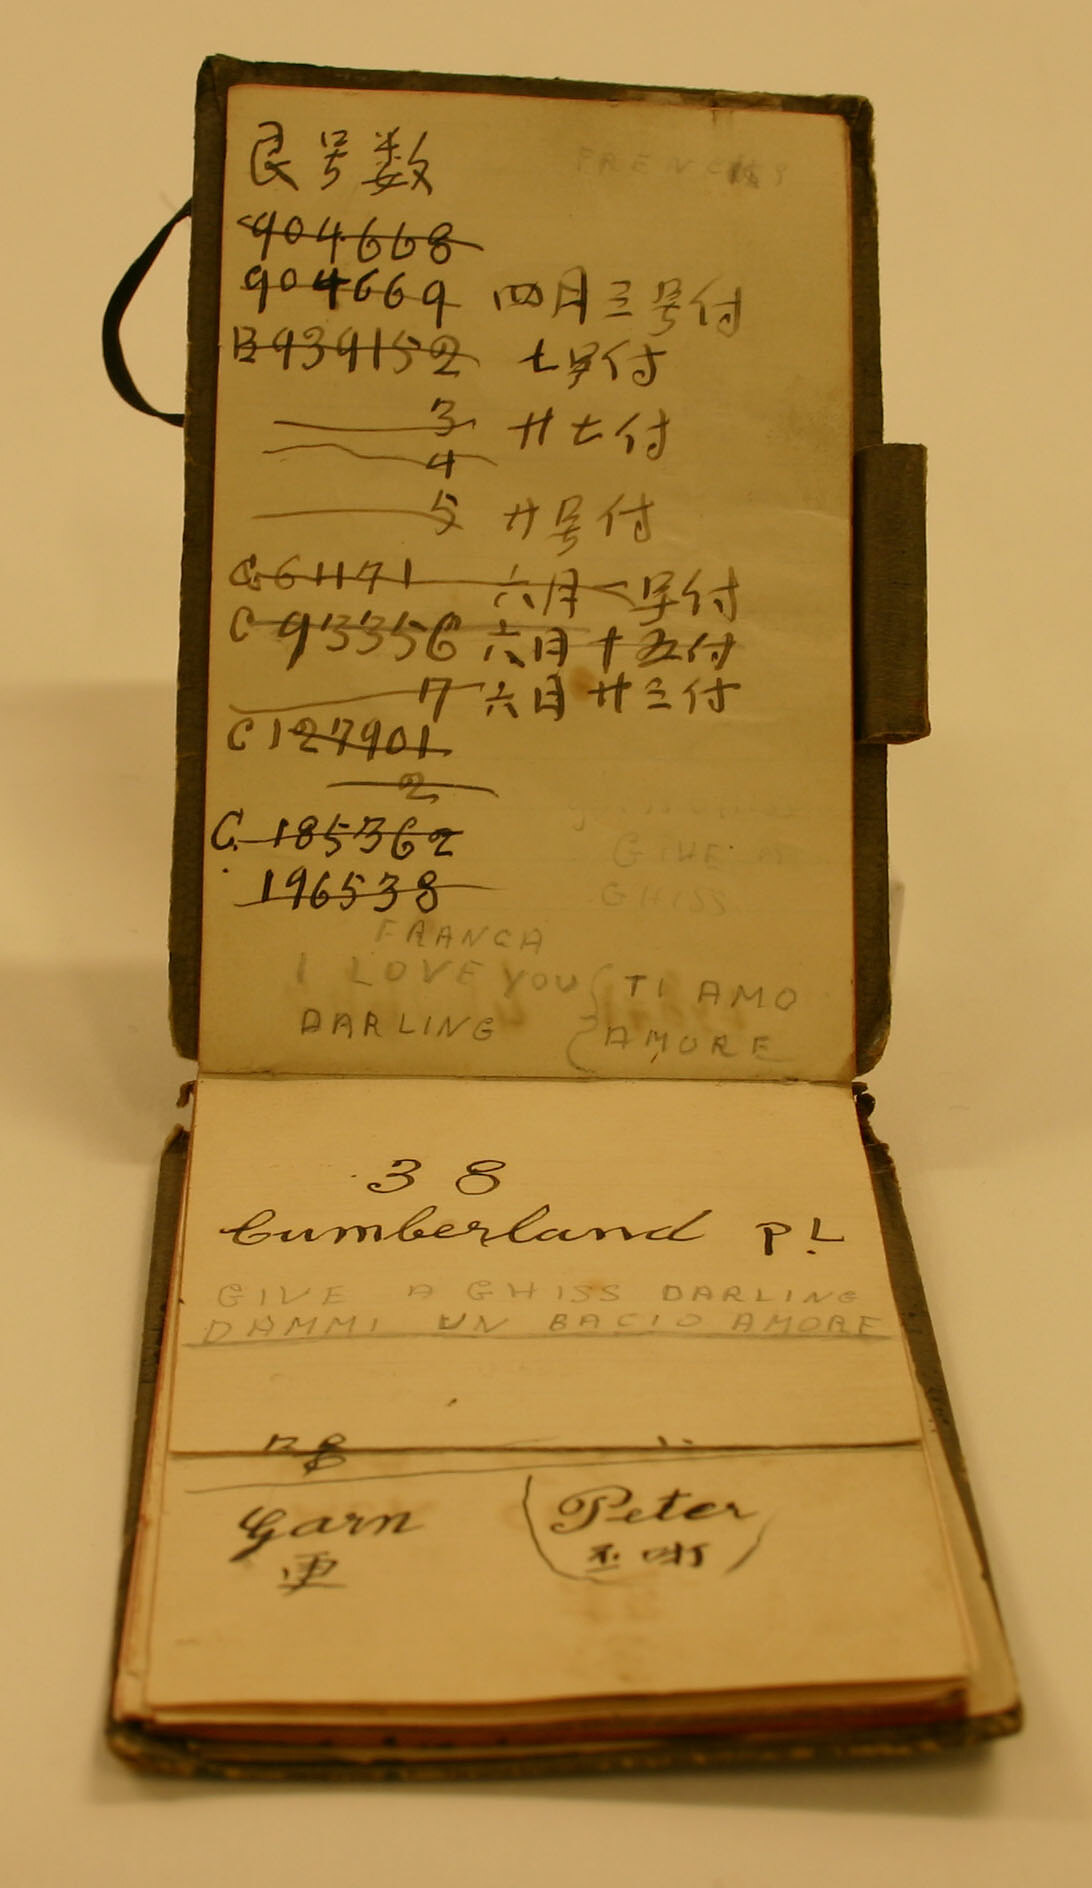 良号数
904668
904669 四月三号付
B939152 七号付
3 廿七付
4
5 廿号付
C61171 六月一号付
C 93356 六月十五付
7 六月廿三付
C 127901
2
C. 185362
196538
GIVE
GHISS
FRANCA
I LOVE YOU { TI AMO
DARLING { AMORE
38
Cumberland PL
GIVE A GHISS DARLING
DAMMI UN BACIO AMORE
78
Garn (Peter
更